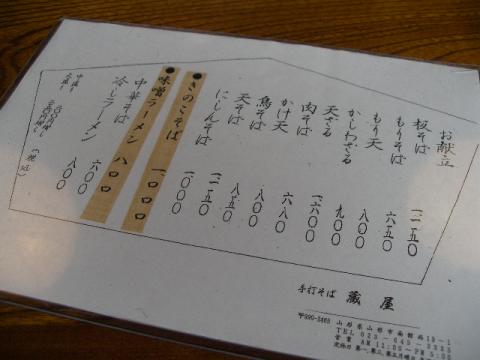 お献立
板そば
もりそば
もり天
かしわざる
天ざる
肉そば
かけ天
鳥そば
天そば
にしんそば
●きのこそば
●味噌ラーメン
中華そば
冷しラーメン
一一五〇
六五〇
八〇〇
九〇〇
一六〇〇
六八〇
八〇〇
八五〇
一一五〇
一〇〇〇
一〇〇〇
八〇〇
六〇〇
八〇〇
手打そば 蔵屋